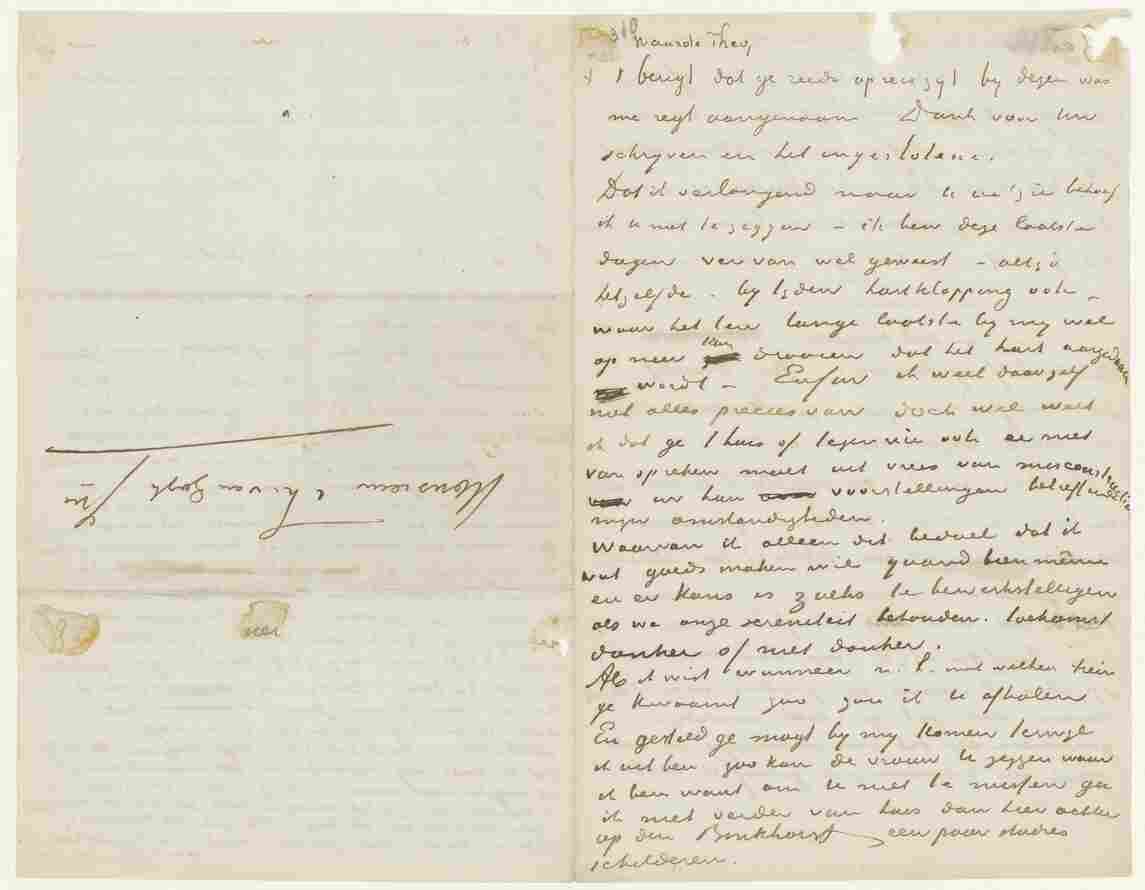 Waarde Theo,
't berigt dat ge reeds op reis zyt by dezen was
me regt aangenaam Dank voor Uw
schryven en het ingeslotene.
Dat ik verlangend naar U ben behoef
ik U niet te zeggen – ik ben deze laatste
dagen ver van wel geweest – altyd
hetzelfde – by tyden hartklopping ook –
waar het ten lange laatste by my wel
op neer kan draaien dat het hart aangedaan
wordt – Enfin ik weet daar zelf
niet alles precies van doch wel weet
ik dat ge t huis of tegen wie ook er niet
van spreken moet uit vrees van misconstructie
in hun voorstellingen betreffende
mijn omstandigheden.
Waarvan ik alleen dit bedoel dat ik
wat goeds maken wil quand bien même
en er kans is zulks te bewerkstelligen
als we onze sereniteit behouden. toekomst
donker of niet donker.
Als ik wist wanneer n.l. met welken trein
ge kwaamt zoo zou ik U afhalen
En gesteld ge mogt by my komen terwyl
ik uit ben zoo kan de vrouw U zeggen waar
ik ben want om U niet te missen ga
ik niet verder van huis dan hier achter
op den Binkhorst een paar studies
schilderen.
Monsieur Th. van Gogh